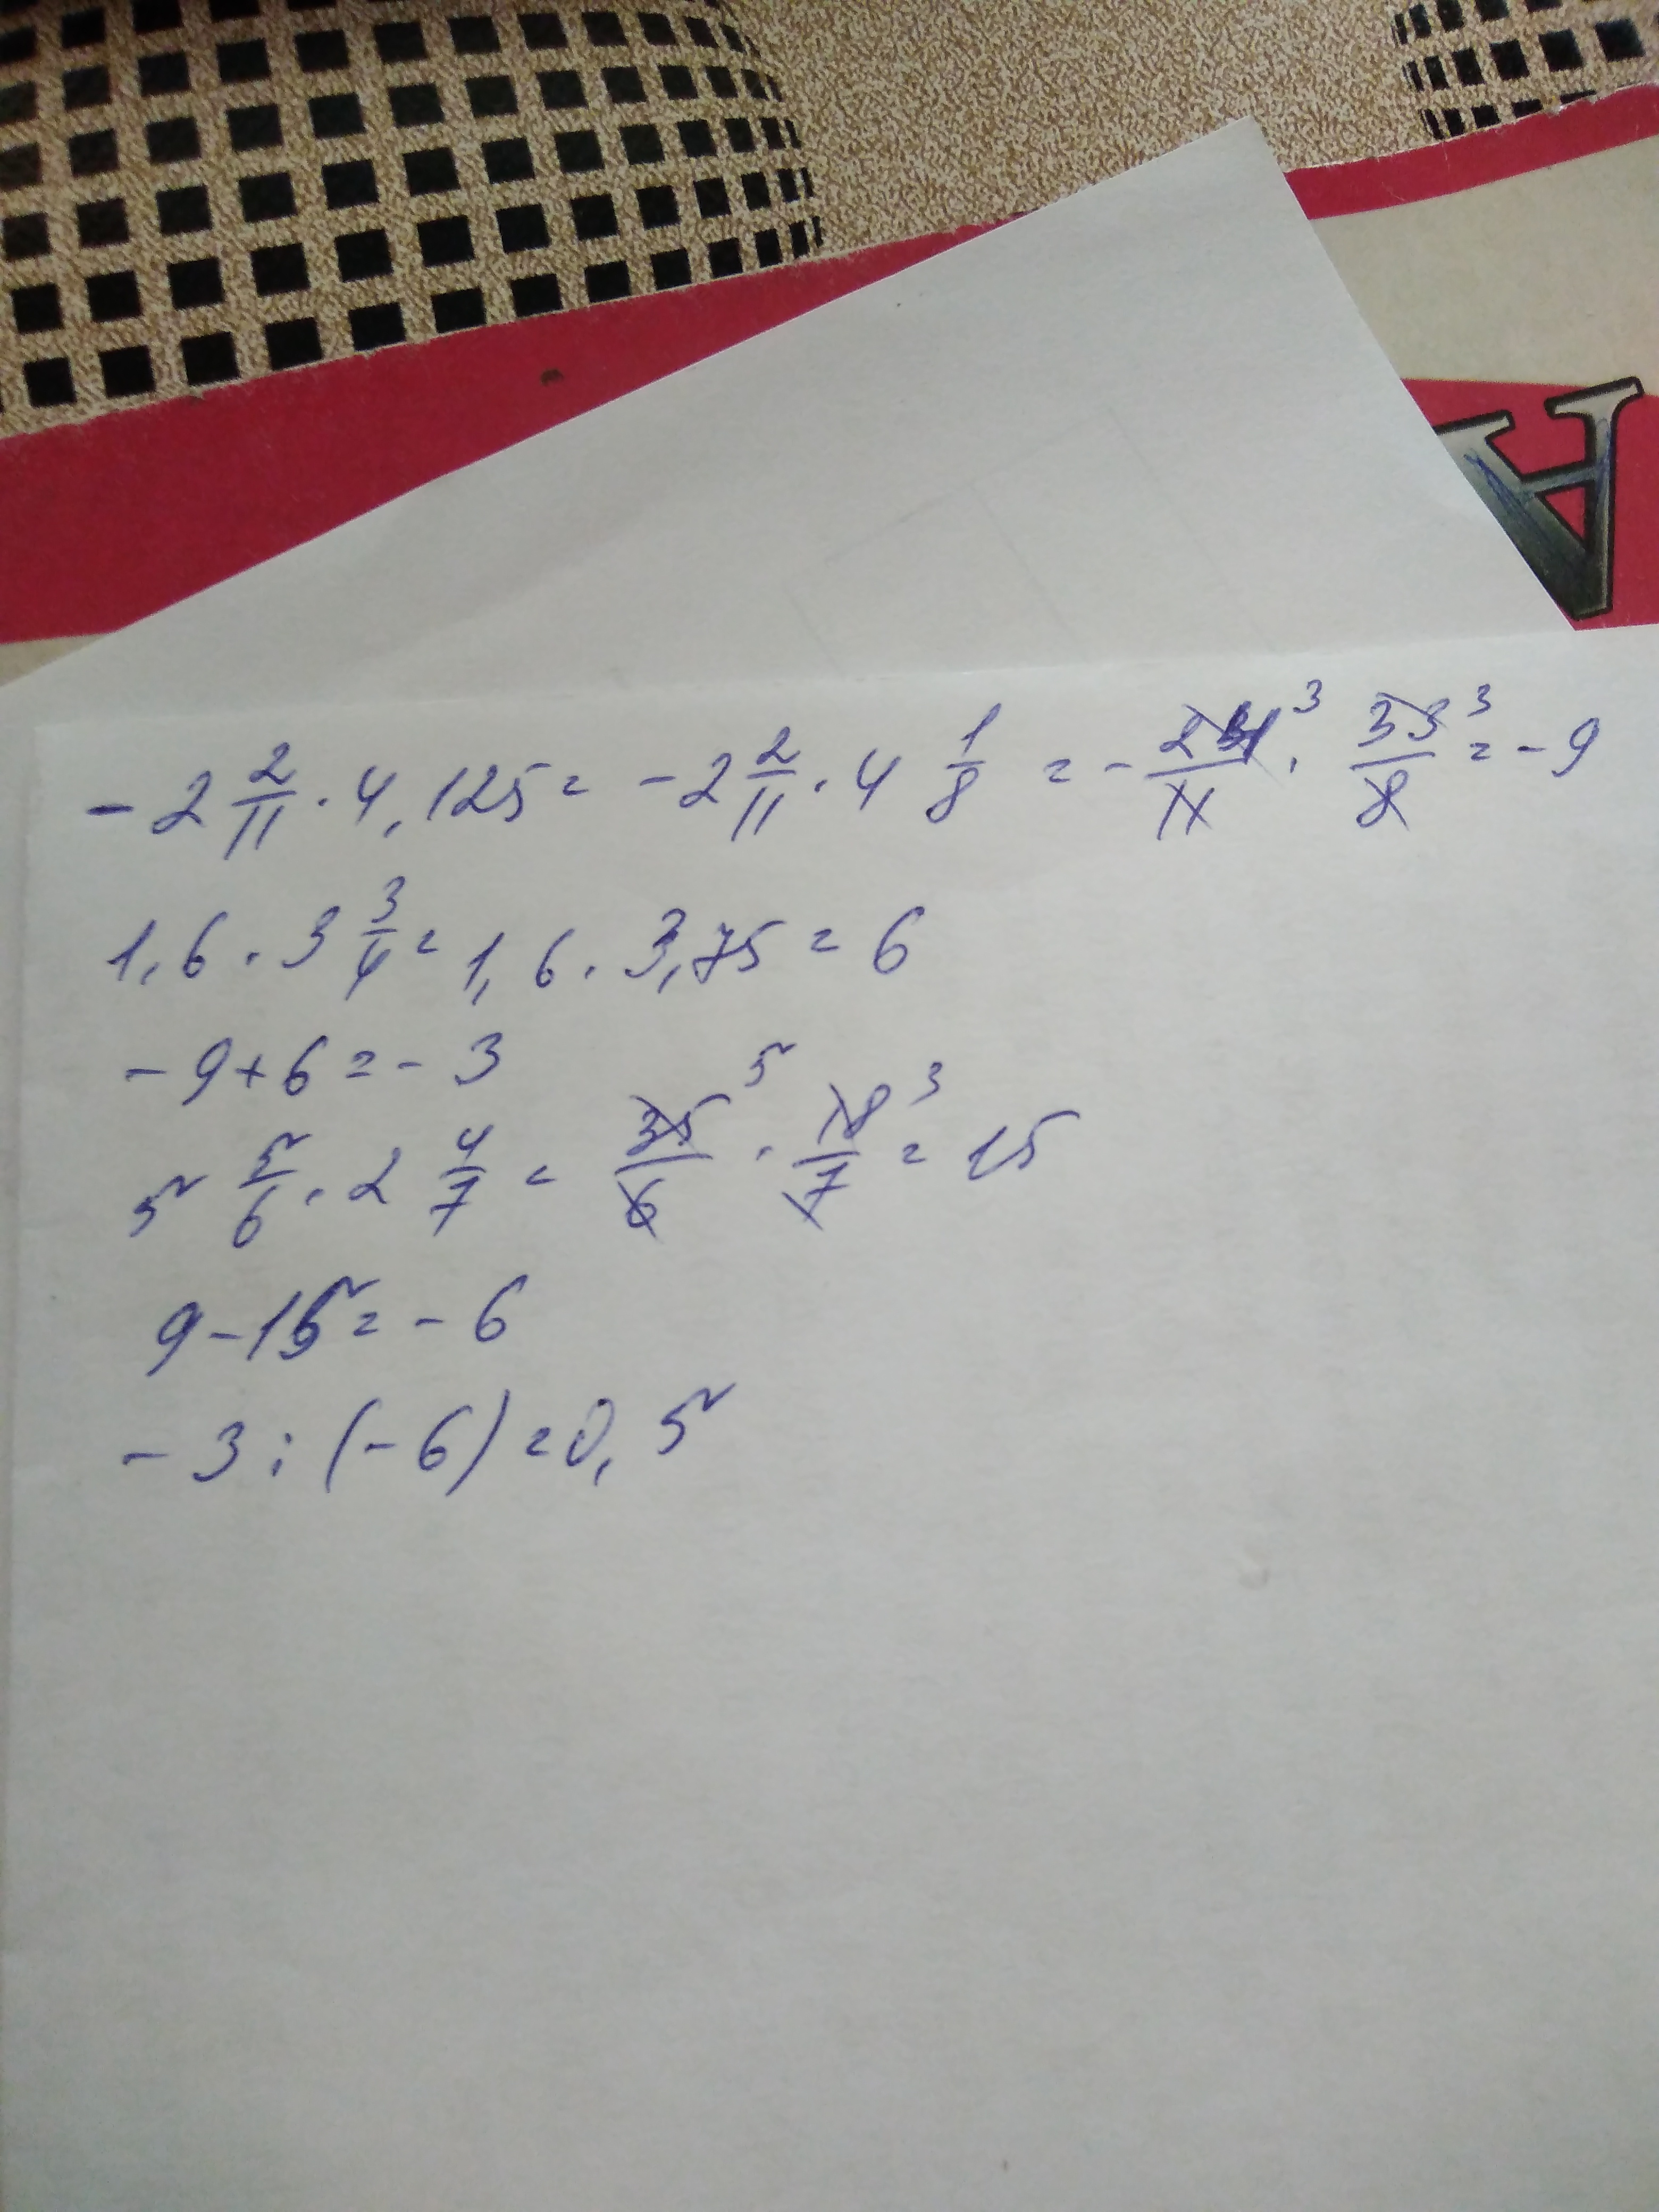 A
- 2 2/11 · 4,125 = - 2 2/11 · 4 1/8 = - 24/11 3 · 33/8 3 = - 9
1,6 · 3 3/4 = 1,6 · 3,75 = 6
- 9 + 6 = - 3
5 5/6 · 2 4/7 = 35/6 5 · 18/7 3 = 15
9 - 15 = - 6
- 3 : (- 6) = 0,5